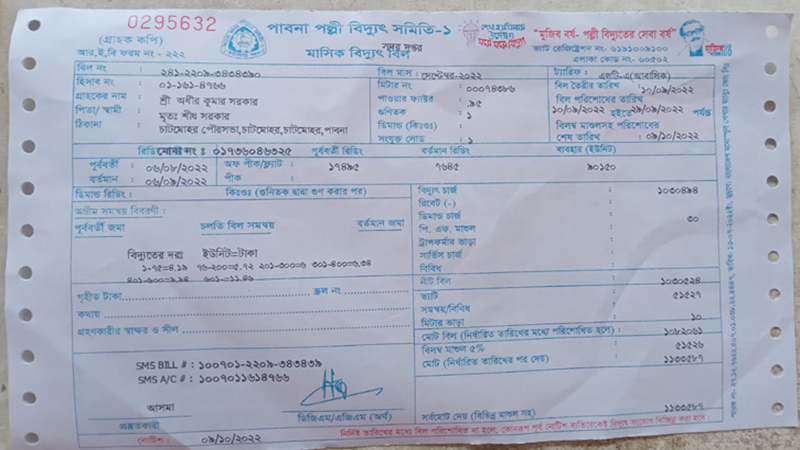 0295632
(গ্রাহক কপি)
আর,ই,বি ফরম নং - ২২২
পাবনা পল্লী বিদ্যুৎ সমিতি-১
সদর দপ্তর
মাসিক বিদ্যুৎ বিল
শেখ হাসিনার উদ্যোগ
ঘরে ঘরে বিদ্যুৎ
"মুজিব বর্ষ- পল্লী বিদ্যুতের সেবা বর্ষ"
ভ্যাট রেজিস্ট্রেশন নং- ৬১৯১০০৯১০০
এলাকা কোড নং- ৬০৫০২
বিল নং : ২৪১-২২০৯-৩৪৩৪৩৯০
হিসাব নং : ০১-১৬১-৪৭৬৬
গ্রাহকের নাম : শ্রী অধীর কুমার সরকার
পিতা/ স্বামী : মৃতঃ শীষ সরকার
ঠিকানা : চাটমোহর পৌরসভা,চাটমোহর,চাটমোহর,পাবনা
বিল মাস : সেপ্টেম্বর-২০২২
মিটার নং : 00074386
পাওয়ার ফ্যাক্টর : .৯৫
গুণিতক : ১
ডিমান্ড (কিঃওঃ) :
সংযুক্ত লোড : ১
ট্যারিফ : এলটি-এ(আবাসিক)
বিল তৈরীর তারিখ : ১০/০৯/২০২২
বিল পরিশোধের তারিখ
১০/০৯/২০২২ হইতে ২৯/০৯/২০২২ পর্যন্ত
বিলম্ব মাশুলসহ পরিশোধের
শেষ তারিখ : ০৯/১০/২০২২
রিডিং মোবাঃ নং ঃ ০১৭৩৬০৪৬৩২৫ পূর্ববর্তী রিডিং বর্তমান রিডিং ব্যবহার (ইউনিট)
পূর্ববর্তী : ০৬/০৮/২০২২ অফ পীক/ফ্ল্যাট : ১৭৪৯৫ ৭৬৪৫ ৯০১৫০
বর্তমান : ০৬/০৯/২০২২ পীক :
ডিমান্ড রিডিং: কিঃওঃ (গুনিতক দ্বারা গুণ করার পর)
অগ্রীম সমন্বয় বিবরণী :
পূর্ববর্তী জমা চলতি বিল সমন্বয় বর্তমান জমা
বিদ্যুতের দরঃ ইউনিট=টাকা
১-৭৫=৪.১৯ ৭৬-২০০=৫.৭২ ২০১-৩০০=৬ ৩০১-৪০০=৬.৩৪
৪০১-৬০০=৯.৯৪ ৬০১-=১১.৪৬
গৃহীত টাকা স্ক্রল নং
কথায়
গ্রহণকারীর স্বাক্ষর ও সীল
বিদ্যুৎ চার্জ : ১০৩০৪৯৪
রিবেট (-)
ডিমান্ড চার্জ : ৩০
পি. এফ. মাশুল
ট্রান্সফর্মার ভাড়া
সার্ভিস চার্জ
বিবিধ
নীট বিল : ১০৩০৫২৪
ভ্যাট : ৫১৫২৭
সমন্বয়/বিবিধ
মিটার ভাড়া : ১০
মোট বিল (নির্ধারিত তারিখের মধ্যে পরিশোধিত হলে) : ১০৮২০৬১
বিলম্ব মাশুল ৫% : ৫১৫২৬
মোট (নির্ধারিত তারিখের পর দেয়) : ১১৩৩৫৮৭
সর্বমোট দেয় (বিভিন্ন মাশুল সহ) : ১১৩৩৫৮৭
SMS BILL # : ১০০৭০১-২২০৯-৩৪৩৪৩৯
SMS A/C # : ১০০৭০১১৬১৪৭৬৬
আসমা
প্রস্তুতকারী
ডিজিএম/এজিএম (অর্থ)
নোটিশ : ০৯/১০/২০২২
নির্দিষ্ট তারিখের মধ্যে বিল পরিশোধিত না হলে, কোনরূপ পূর্ব নোটিশ ব্যতিরেকেই বিদ্যুৎ সংযোগ বিচ্ছিন্ন করা হবে